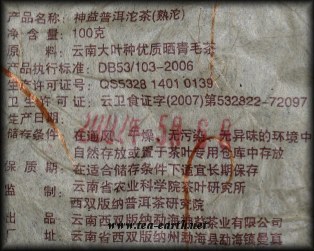 产品名称：神益普洱沱茶(熟沱)
净 含 量：100克
原 料：云南大叶种优质晒青毛茶
产品执行标准：DB53/103-2006
生产许可证号：QS5328 1401 0139
卫生许可证：云卫食证字(2007)第532822-72097
生产日期：
储存条件：在通风、干燥、无污染、无异味的环境中
自然存放或置于茶叶专用仓库中存放
保 质 期：在适合储存条件下适宜长期保存
监 制：云南省农业科学院茶叶研究所
西双版纳普洱茶研究院
出 品：云南西双版纳勐海神益茶业有限公司
厂 址：云南省西双版纳州勐海县勐海镇
www.tea-earth.net